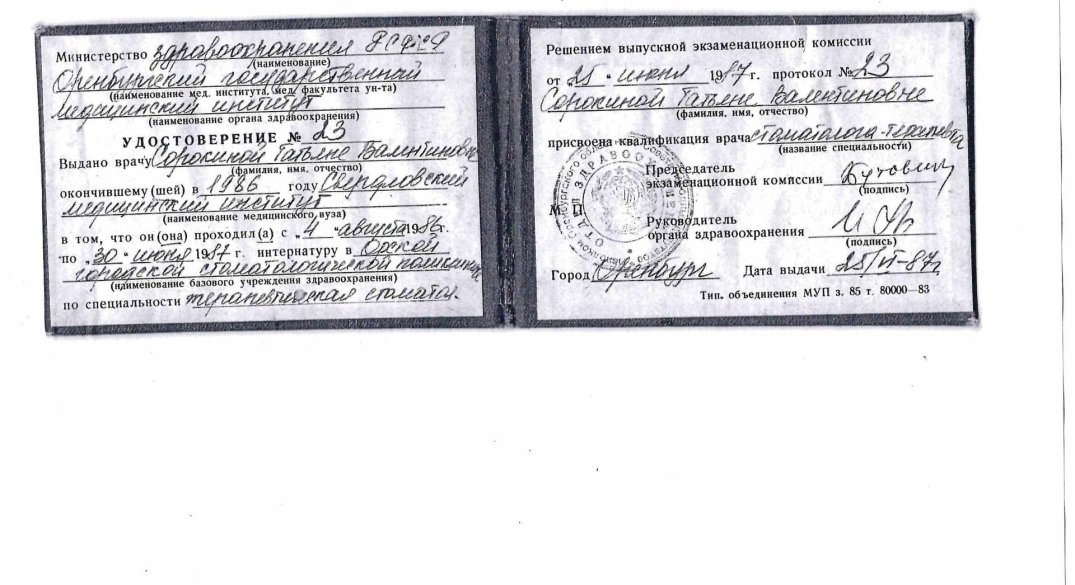 Министерство здравоохранения РСФСР
(наименование)
Оренбургский государственный
(наименование мед. института, мед. факультета ун-та)
медицинский институт
(наименование органа здравоохранения)
УДОСТОВЕРЕНИЕ № 23
Выдано врачу Сорокиной Татьяне Валентиновне
(фамилия, имя, отчество)
окончившему (шей) в 1986 году Свердловский
медицинский институт
(наименование медицинского вуза)
в том, что он (она) проходил (а) с „4 " августа 1986 г.
по „30 " июня 1987 г. интернатуру в Орской
городской стоматологической поликлинике
(наименование базового учреждения здравоохранения)
по специальности терапевтическая стоматол.
Решением выпускной экзаменационной комиссии
от „25 " июня 1987 г. протокол № 23
Сорокиной Татьяне Валентиновне
(фамилия, имя, отчество)
присвоена квалификация врача стоматолога-терапевта
(название специальности)
Председатель
экзаменационной комиссии
(подпись)
М. П.
Руководитель
органа здравоохранения
(подпись)
Город Оренбург Дата выдачи 25/VI-87г
Тип. объединения МУП з. 85 т. 80000—83